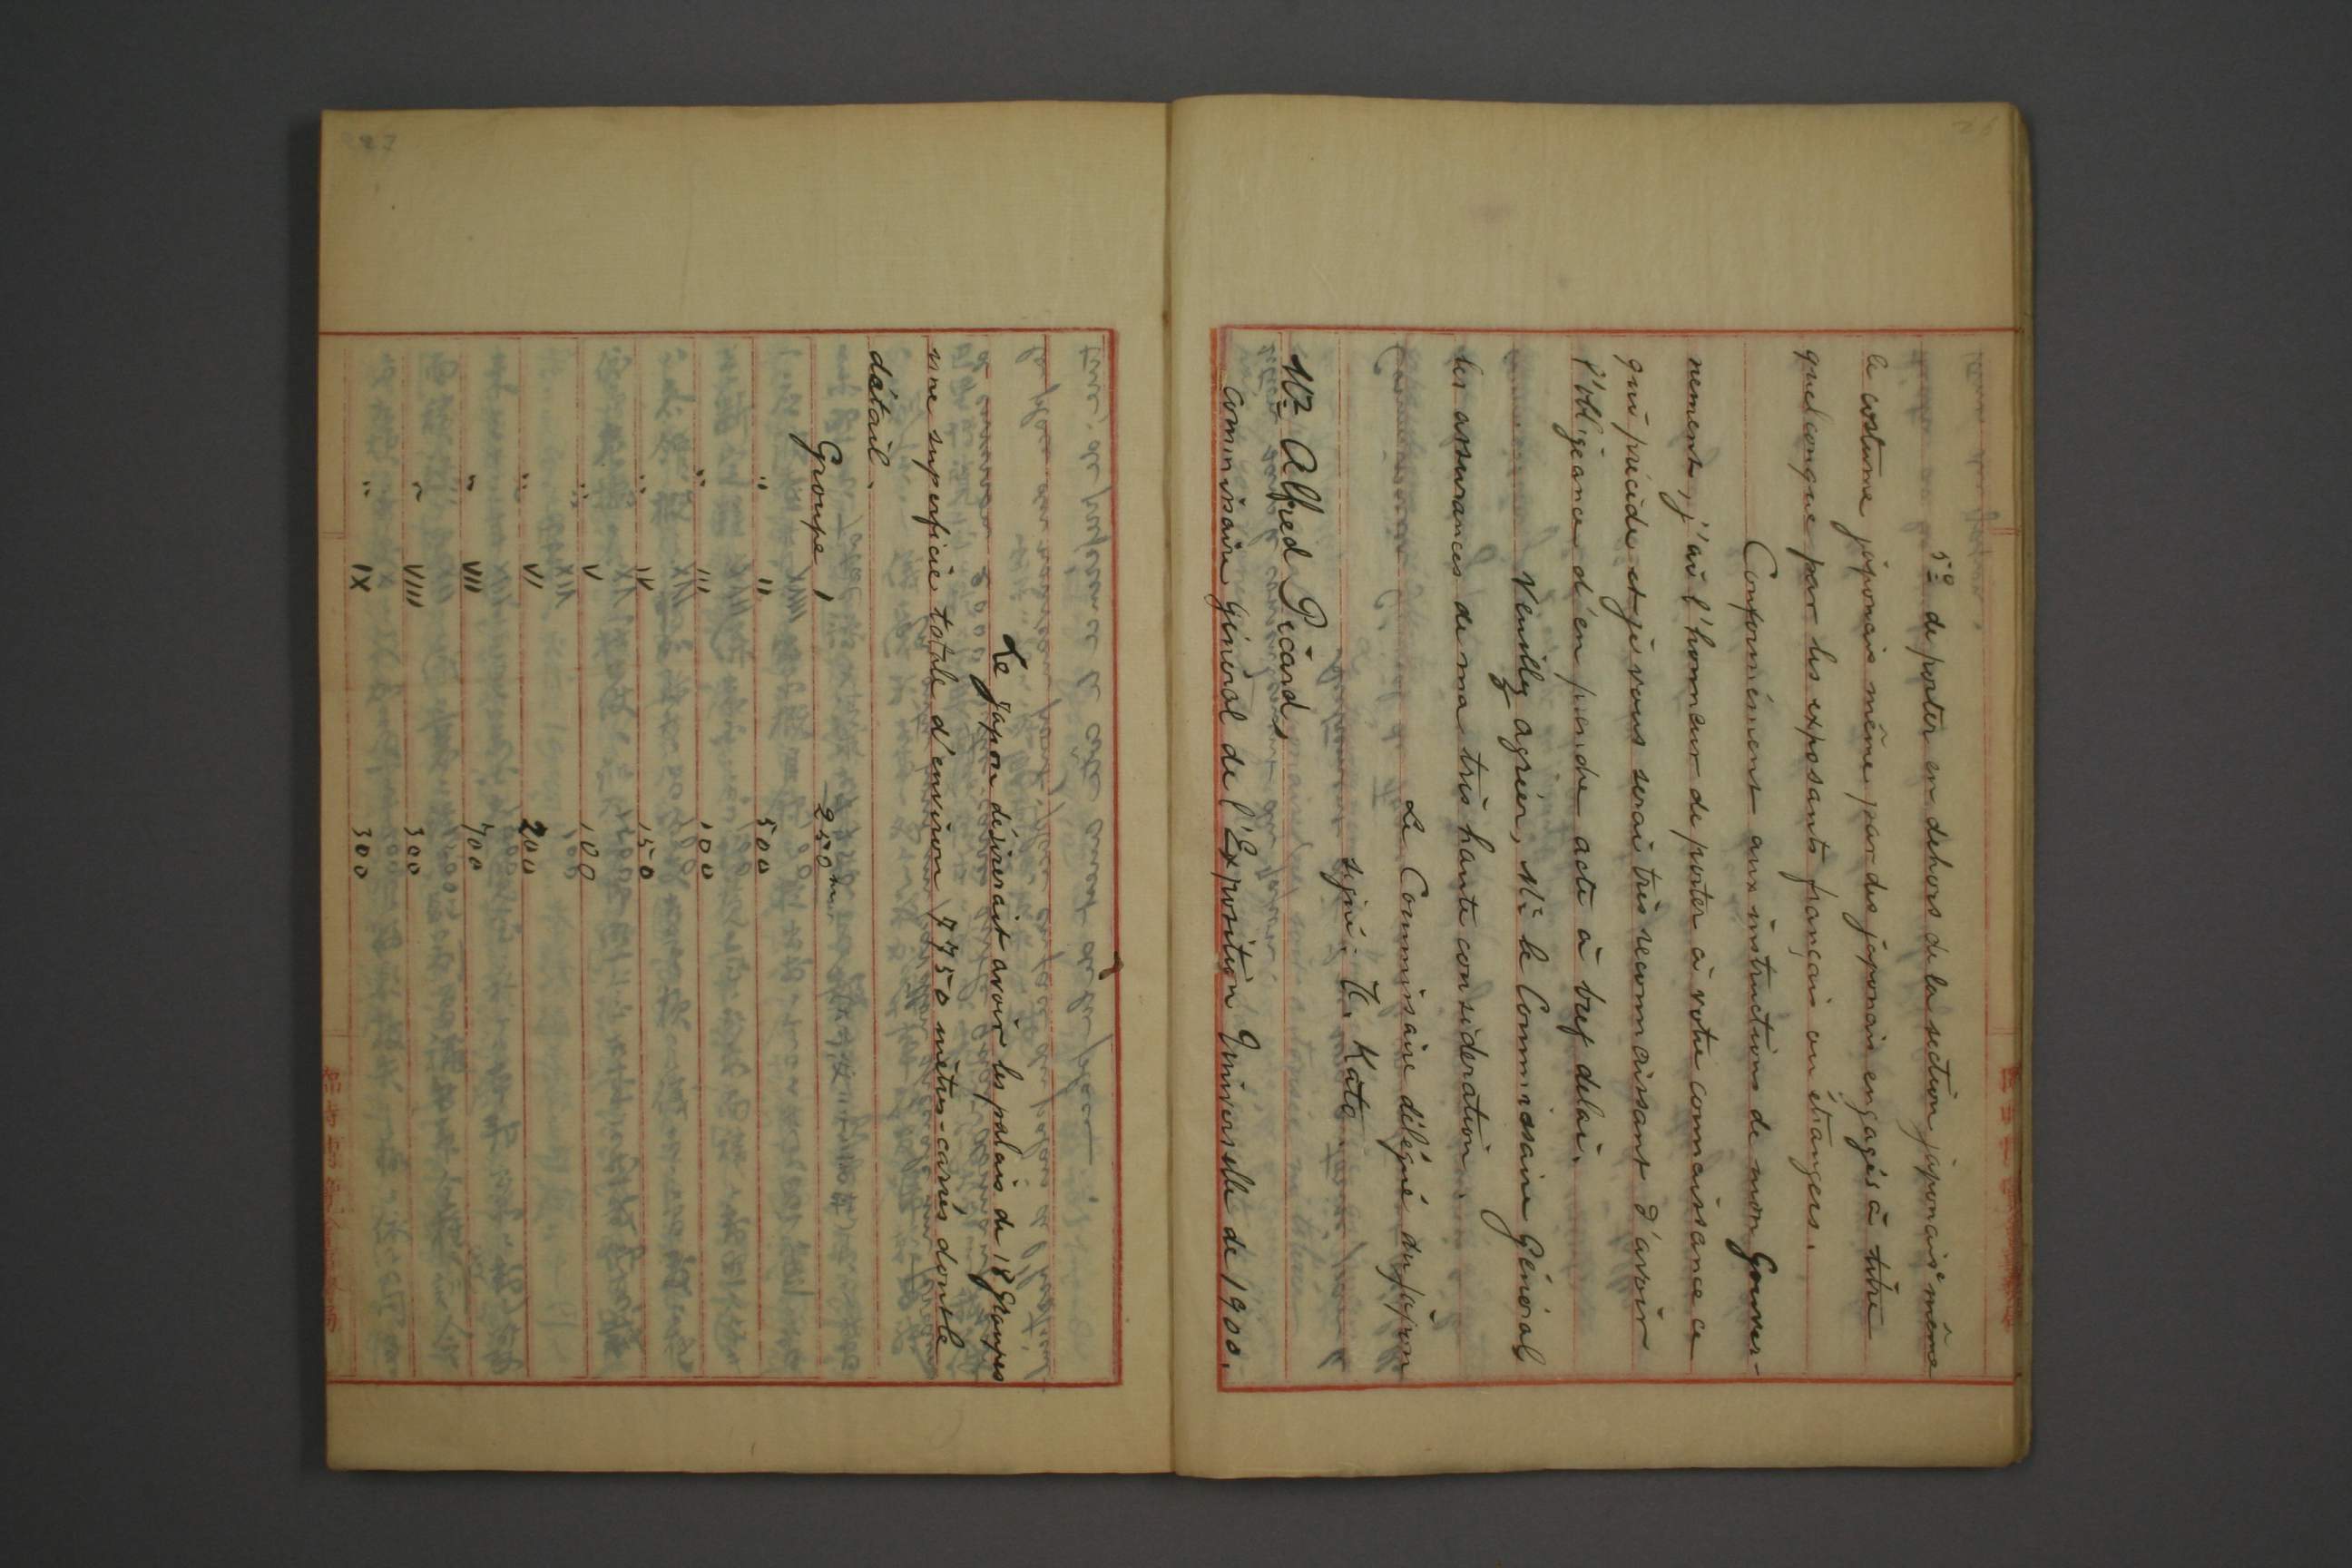 5º de porter en dehors de la section japonaise même
le costume japonais même par des japonais engagés à titre
quelconque par les exposants français ou étrangers.
Conformément aux instructions de mon Gouver-
nement, j'ai l'honneur de porter à votre connaissance ce
qui précède et je vous serai très reconnaissant d'avoir
l'obligeance d'en prendre acte à bref delai.
Veuillez agréer, Mr le Commissaire Général
les assurances de ma très haute consideration.
Le Commissaire délégué du Japon
signé: Kato
Mr Alfred Picard,
Commissaire général de l'Exposition Universelle de 1900.
Le Japon désirerait avoir les palais de 18 Groupes
une superficie totale d'environ 7750 mètres-carrés dont le
détail.
Groupe I 250m
" II 500
" III 100
" IV 150
" V 100
" VI 200
" VII 700
" VIII 300
" IX 300